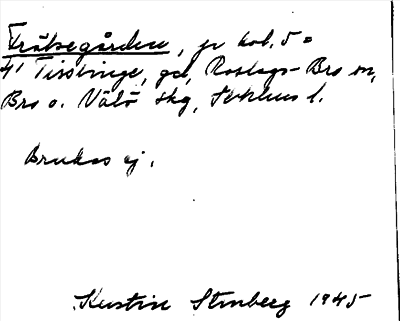 Frälsegården, jr kol. 5 =
4¹ Tissbinge, gd, Roslags-Bro sn,
Bro o. Vätö skg, Sthlms l.
Brukas ej.
Kerstin Stenberg 1945